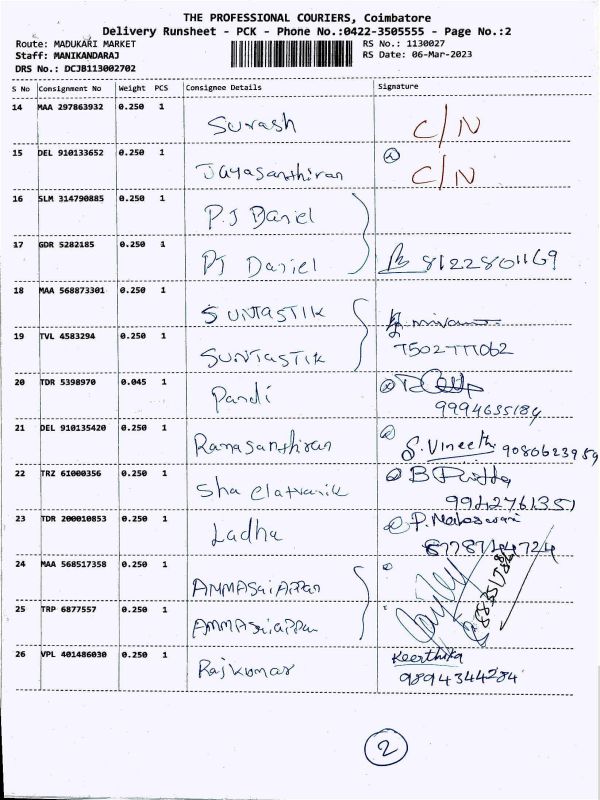 THE PROFESSIONAL COURIERS, Coimbatore
Delivery Runsheet - PCK - Phone No.:0422-3505555 - Page No.:2
Route: MADUKARI MARKET
RS No.: 1130027
Staff: MANIKANDARAJ
RS Date: 06-Mar-2023
DRS No.: DCJB113002702
S No Consignment No Weight PCS Consignee Details Signature
14 MAA 297863932 0.250 1 Surash C/N
15 DEL 910133652 0.250 1 Jayasanthiran C/N
16 SLM 314790885 0.250 1 P.J Daniel
17 GDR 5282185 0.250 1 PJ Daniel 8122801169
18 MAA 568873301 0.250 1 SUNTASTIK
19 TVL 4583294 0.250 1 SUNTASTIK 7502777062
20 TDR 5398970 0.045 1 Pandi
9994635184
21 DEL 910135420 0.250 1 Ramasanthiran S. Vineeth 9080623959
22 TRZ 61000356 0.250 1
9942761351
23 TDR 200010853 0.250 1 Ladha
24 MAA 568517358 0.250 1
25 TRP 6877557 0.250 1
26 VPL 401486030 0.250 1 Rajkumar Keerthika
9894344284
2